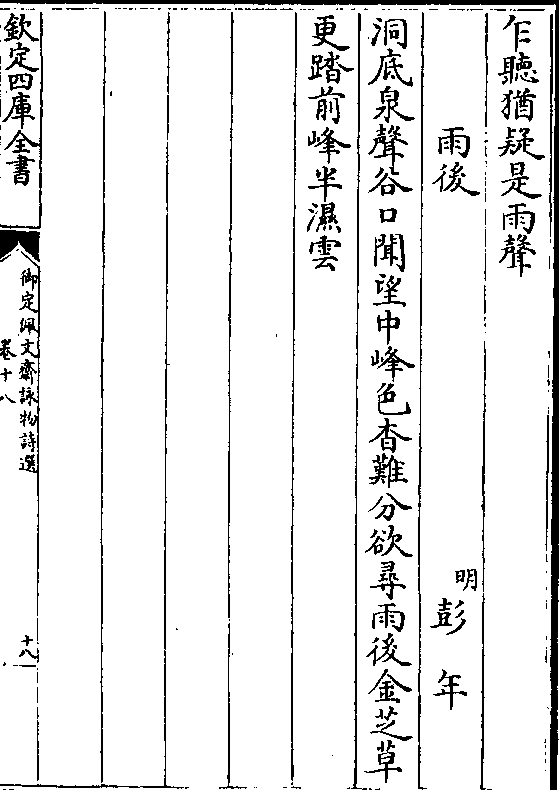 乍聽猶疑是雨聲
雨後
明彭年
洞底泉聲谷口聞望中峰色杳難分欲尋雨後金芝草
更踏前峰半濕雲
欽定四庫全書
御定佩文齋詠物詩選
卷十八
十八